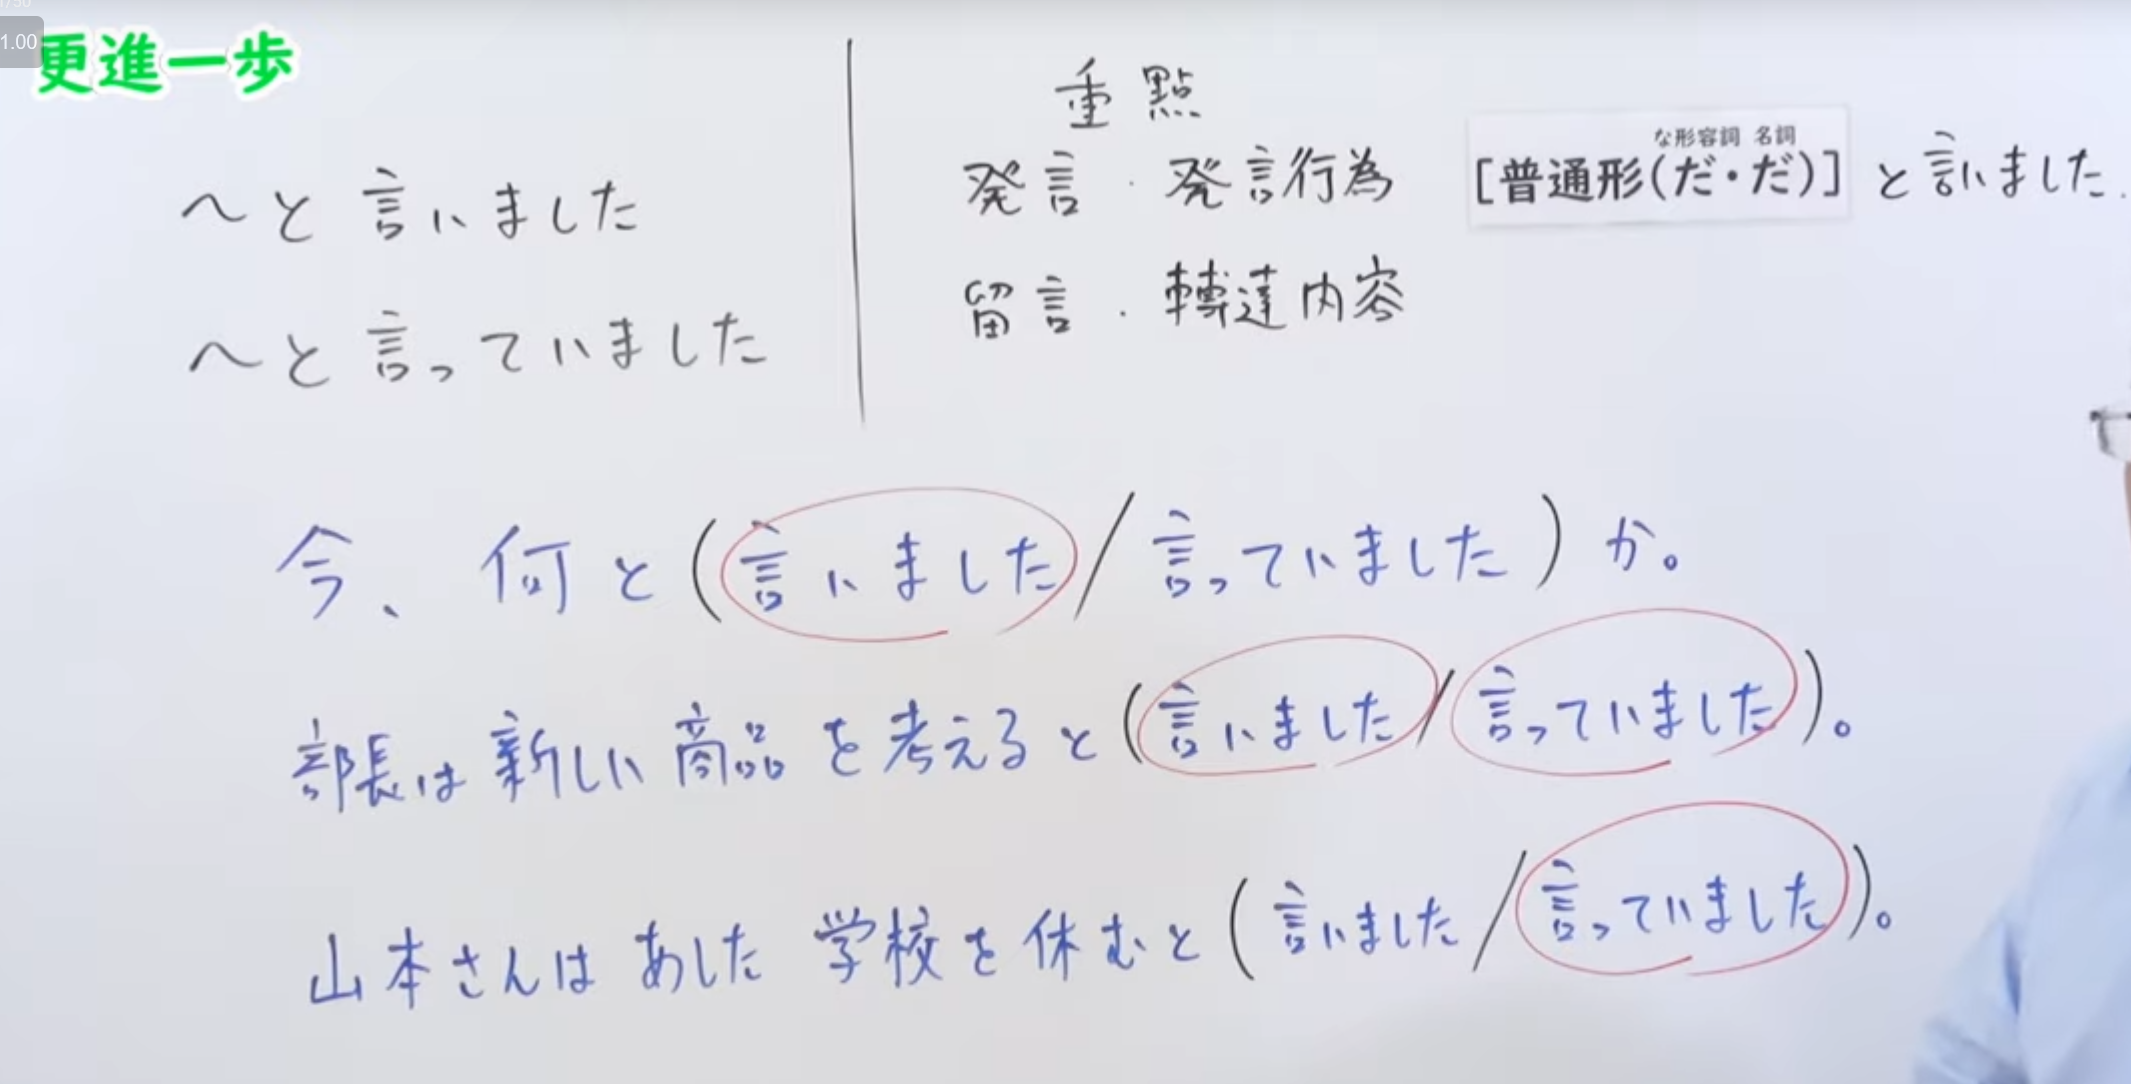 1.00
更進一歩
～と言いました
～と言っていました
重點
発言・発言行為
留言・轉達内容
な形容詞 名詞
[普通形(だ・だ)]と言いました.
今、何と(言いました/言っていました)か。
部長は新しい商品を考えると(言いました/言っていました)。
山本さんはあした学校を休むと(言いました/言っていました)。